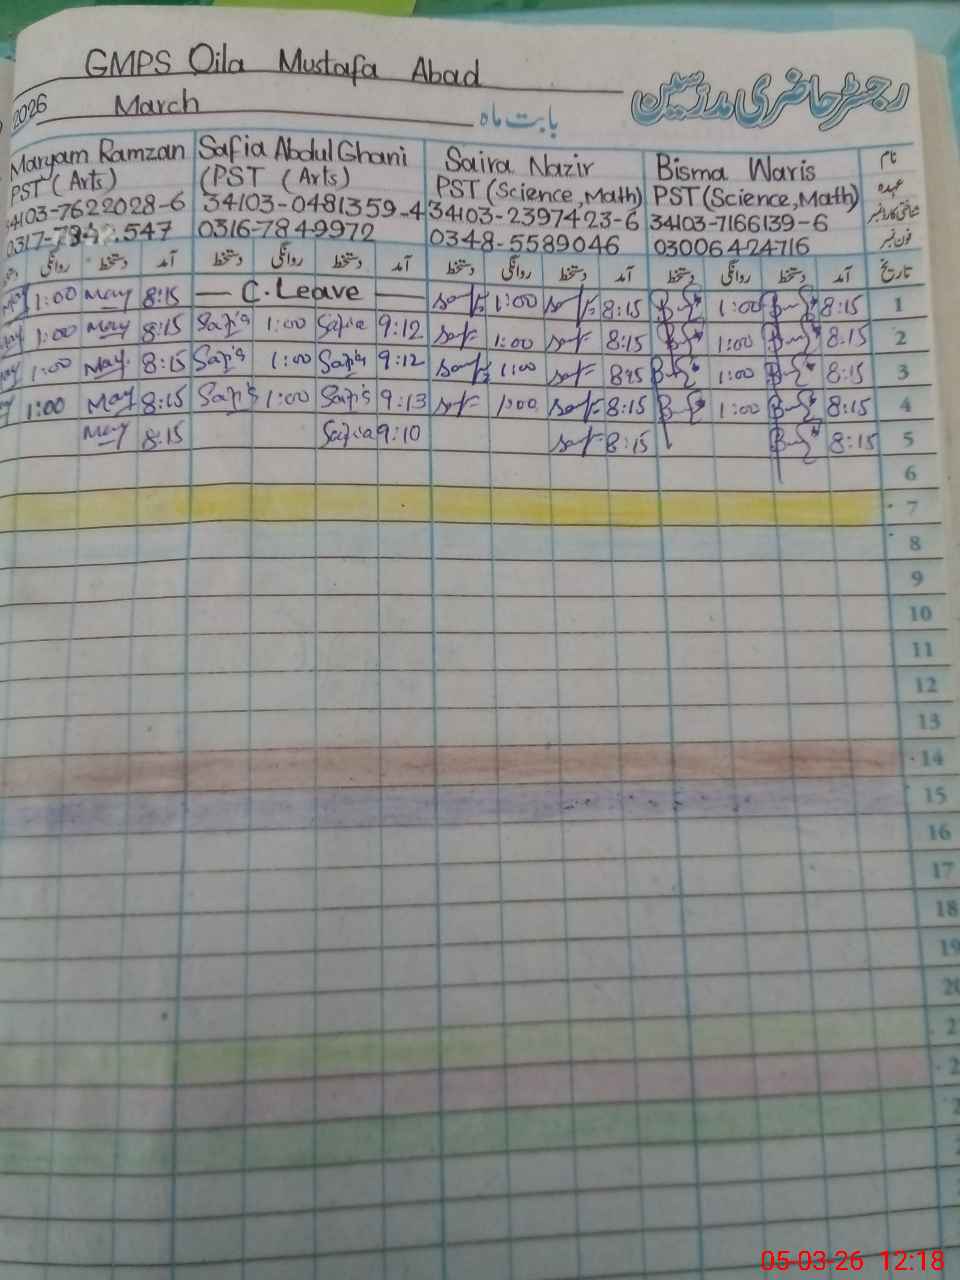 GMPS Qila Mustafa Abad
رجسٹر حاضری مدرسین
2026 March بابت ماہ
Maryam Ramzan Safia Abdul Ghani Saira Nazir Bisma Waris نام
PST (Arts) (PST (Arts) PST (Science, Math) PST (Science, Math) عہدہ
34103-7622028-6 34103-0481359-4 34103-2397423-6 34103-7166139-6 شناختی کارڈ نمبر
0316-7849972 0348-5589046 03006424716 فون نمبر
دستخط روانگی دستخط آمد دستخط روانگی دستخط آمد دستخط روانگی دستخط آمد دستخط روانگی دستخط آمد تاریخ
1:00 May 8:15 — C.Leave — 1:00 8:15 1:00 8:15 1
1:00 May 8:15 Safia 1:00 Safia 9:12 1:00 8:15 1:00 8:15 2
1:00 May 8:15 Safia 1:00 Safia 9:12 1:00 1:00 8:15 3
1:00 May 8:15 Safia 1:00 Safia 9:13 1:00 8:15 1:00 8:15 4
May 8:15 Safia 9:10 8:15 8:15 5
6
7
8
9
10
11
12
13
14
15
16
17
18
19
05-03-26 12:18